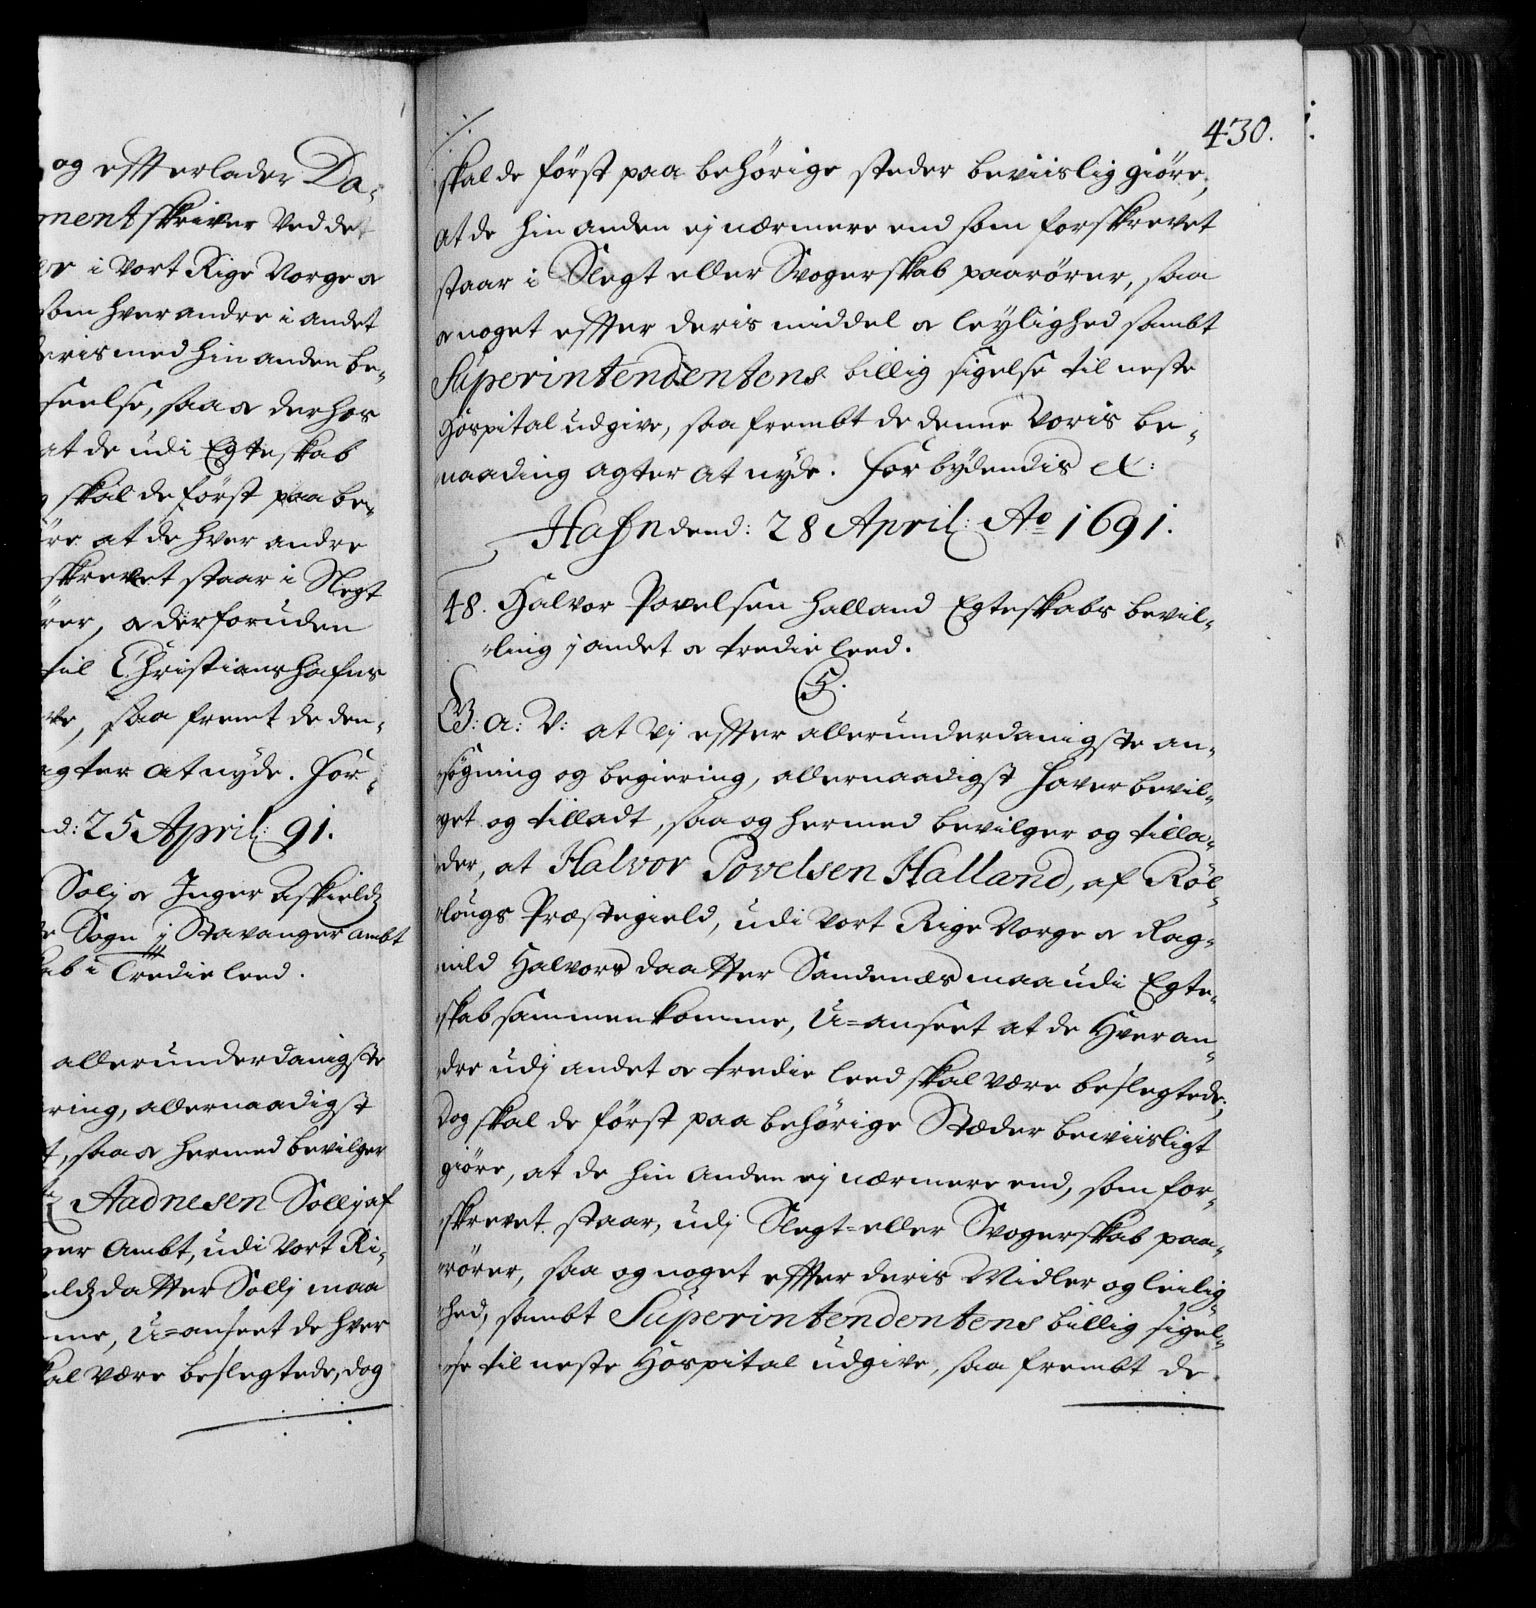 og effterlader Da-
ment skriver ved det
i vort Rige Norge &
som hverandre i andet
deris med hin anden be-
seelse, saa & derhos
at de udi Egteskab
skal de först paa be-
öre at de hver andre
skrevet staar i Slegt
rörer, & derforuden
til Christianshafns
ve, saa fremt de den-
agter at nyde. For-
d: 25 April: 91.
Solj & Inger Askieldz
Sogn j Stavanger ambt
skab i Tredie leed.
allerunderdanigste
ring, allernaadigst
t, saa & hermed bevilger
Aadnesen Sollj af
ger Ambt, udi Vort Ri-
eldz datter Sollj maa
me, U=anseet de hver
skal være beslegtede, dog
430.
skal de först paa behörige steder beviislig giöre,
at de hin anden ej nærmere end som forskrevet
staar i Slegt eller Svogerskab paarörer, saa
& noget effter deris middel & leylighed sambt
Superintendentens billig sigelse til neste
Hospital udgive, saa frembt de denne voris be-
naading agter at nyde. Forbydendis etc:
Hafn dend: 28 April: Ao 1691.
48. Halvor Povelsen Halland Egteskabs bevil-
ling j andet & tredie leed.
C5.
G: A: V: at Vj effter allerunderdanigste an-
sögning og begiering, allernaadigst haver bevil-
get og tilladt, saa og hermed bevilger og tilla-
der, at Halvor Povelsen Halland, af Röl-
lougs Præstegield, udi vort Rige Norge & Rag-
nild Halvors daatter Sandenæs maa udi Egte-
skab sammenkomme, U=anseet at de Hveran-
dre udj andet & tredie leed skal være beslegtede,
Dog skal de först paa behörige Stæder beviisligt
giöre, at de hin anden ej nærmere end, som for-
skrevet staar, udj Slegt= eller Svogerskab paa-
rörer, saa og noget effter deris Midler og leilig-
hed, sambt Superintendentens billig sigel-
se til neste Hospital udgive, saa frembt de